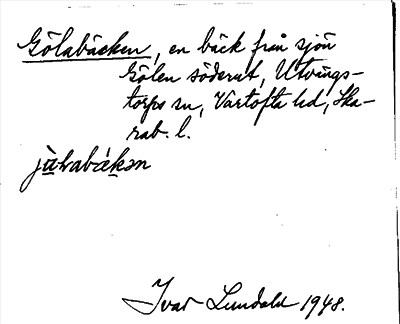 Gölabäcken, en bäck från sjön
Gölen söderut, Utvängs-
torps sn, Vartofta hd, Ska-
rab. l.
Ivar Lundahl 1948.